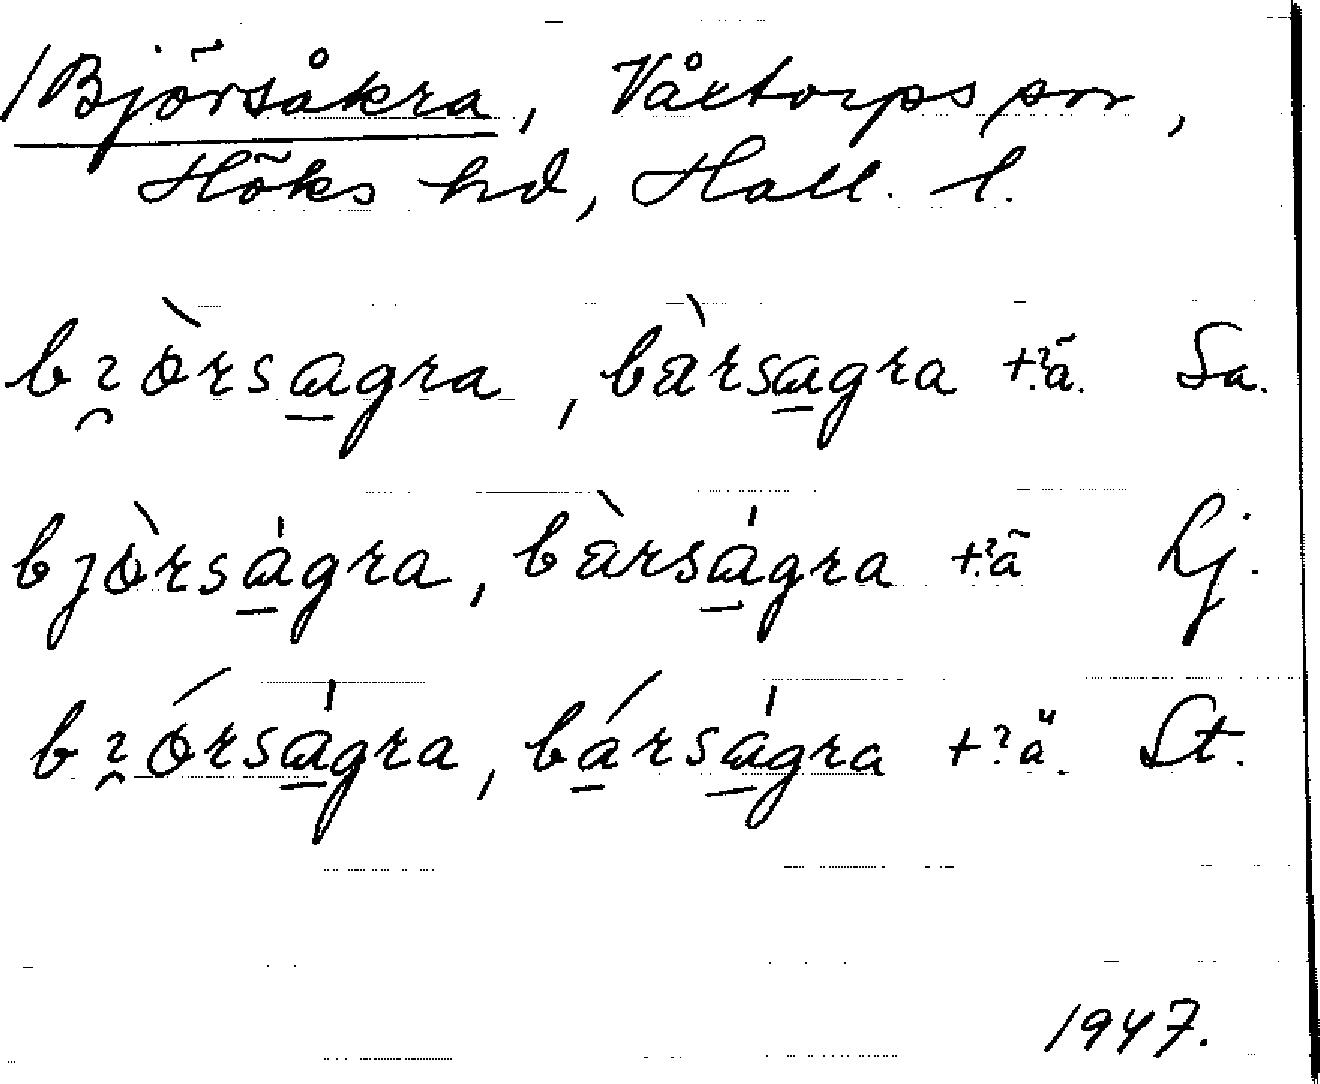 /Björsåkra, Våxtorps sn,
Höks hd, Hall. l.
bɂ̯òrsa̲gra, bàrsa̲gra +?ä. Sa.
bjòrsa̲̍gra, bàrsa̲̍gra +?ä Lj.
bɂ̯órsa̲̍gra, bá̲rsa̲̍gra +?ä. St.
1947.